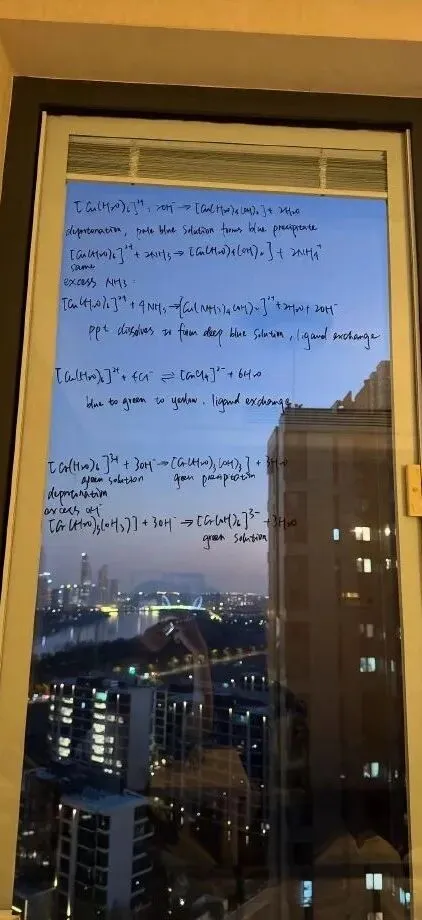 [Cu(H₂O)₆]²⁺ + 2OH⁻ → [Cu(H₂O)₄(OH)₂] + 2H₂O
deprotonation, pale blue solution forms blue precipitate
[Cu(H₂O)₆]²⁺ + 2NH₃ → [Cu(H₂O)₄(OH)₂] + 2NH₄⁺
same
excess NH₃:
[Cu(H₂O)₆]²⁺ + 4NH₃ → [Cu(NH₃)₄(H₂O)₂]²⁺ + 2H₂O + 2OH⁻
ppt dissolves to form deep blue solution, ligand exchange
[Cu(H₂O)₆]²⁺ + 4Cl⁻ ⇌ [CuCl₄]²⁻ + 6H₂O
blue to green to yellow, ligand exchange
[Cr(H₂O)₆]³⁺ + 3OH⁻ → [Cr(H₂O)₃(OH)₃] + 3H₂O
green solution green precipitation
deprotonation
excess OH⁻
[Cr(H₂O)₃(OH)₃] + 3OH⁻ → [Cr(OH)₆]³⁻ + 3H₂O
green solution